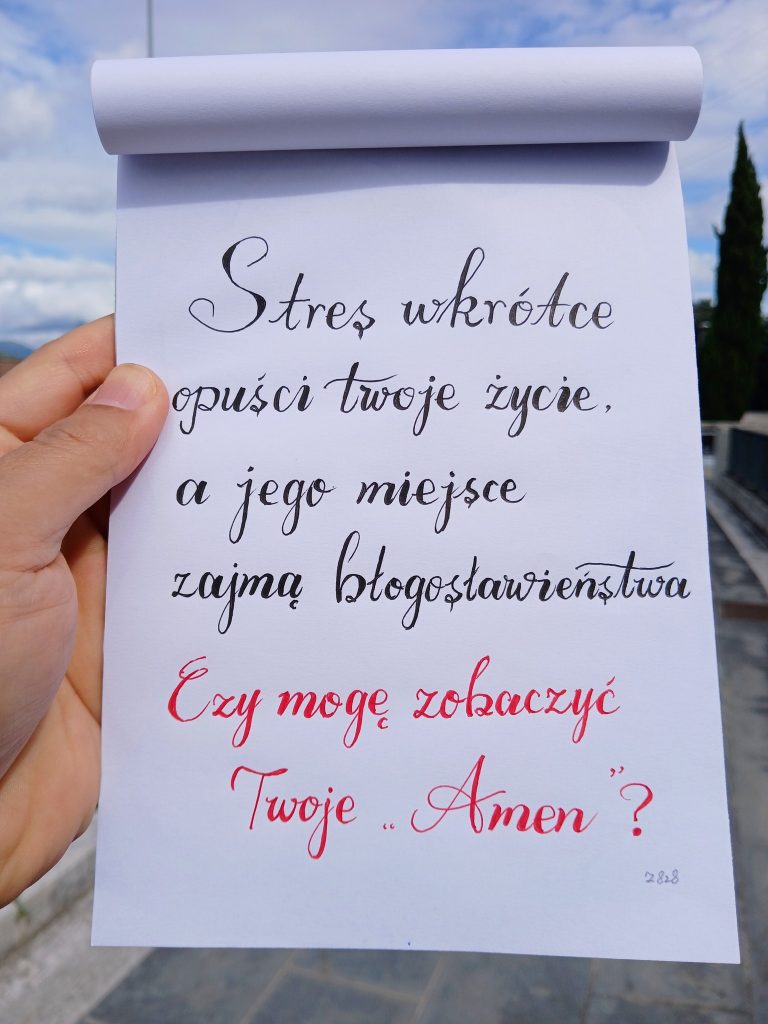 Stres wkrótce
opuści twoje życie,
a jego miejsce
zajmą błogosławieństwa
Czy mogę zobaczyć
Twoje „Amen”?
7828